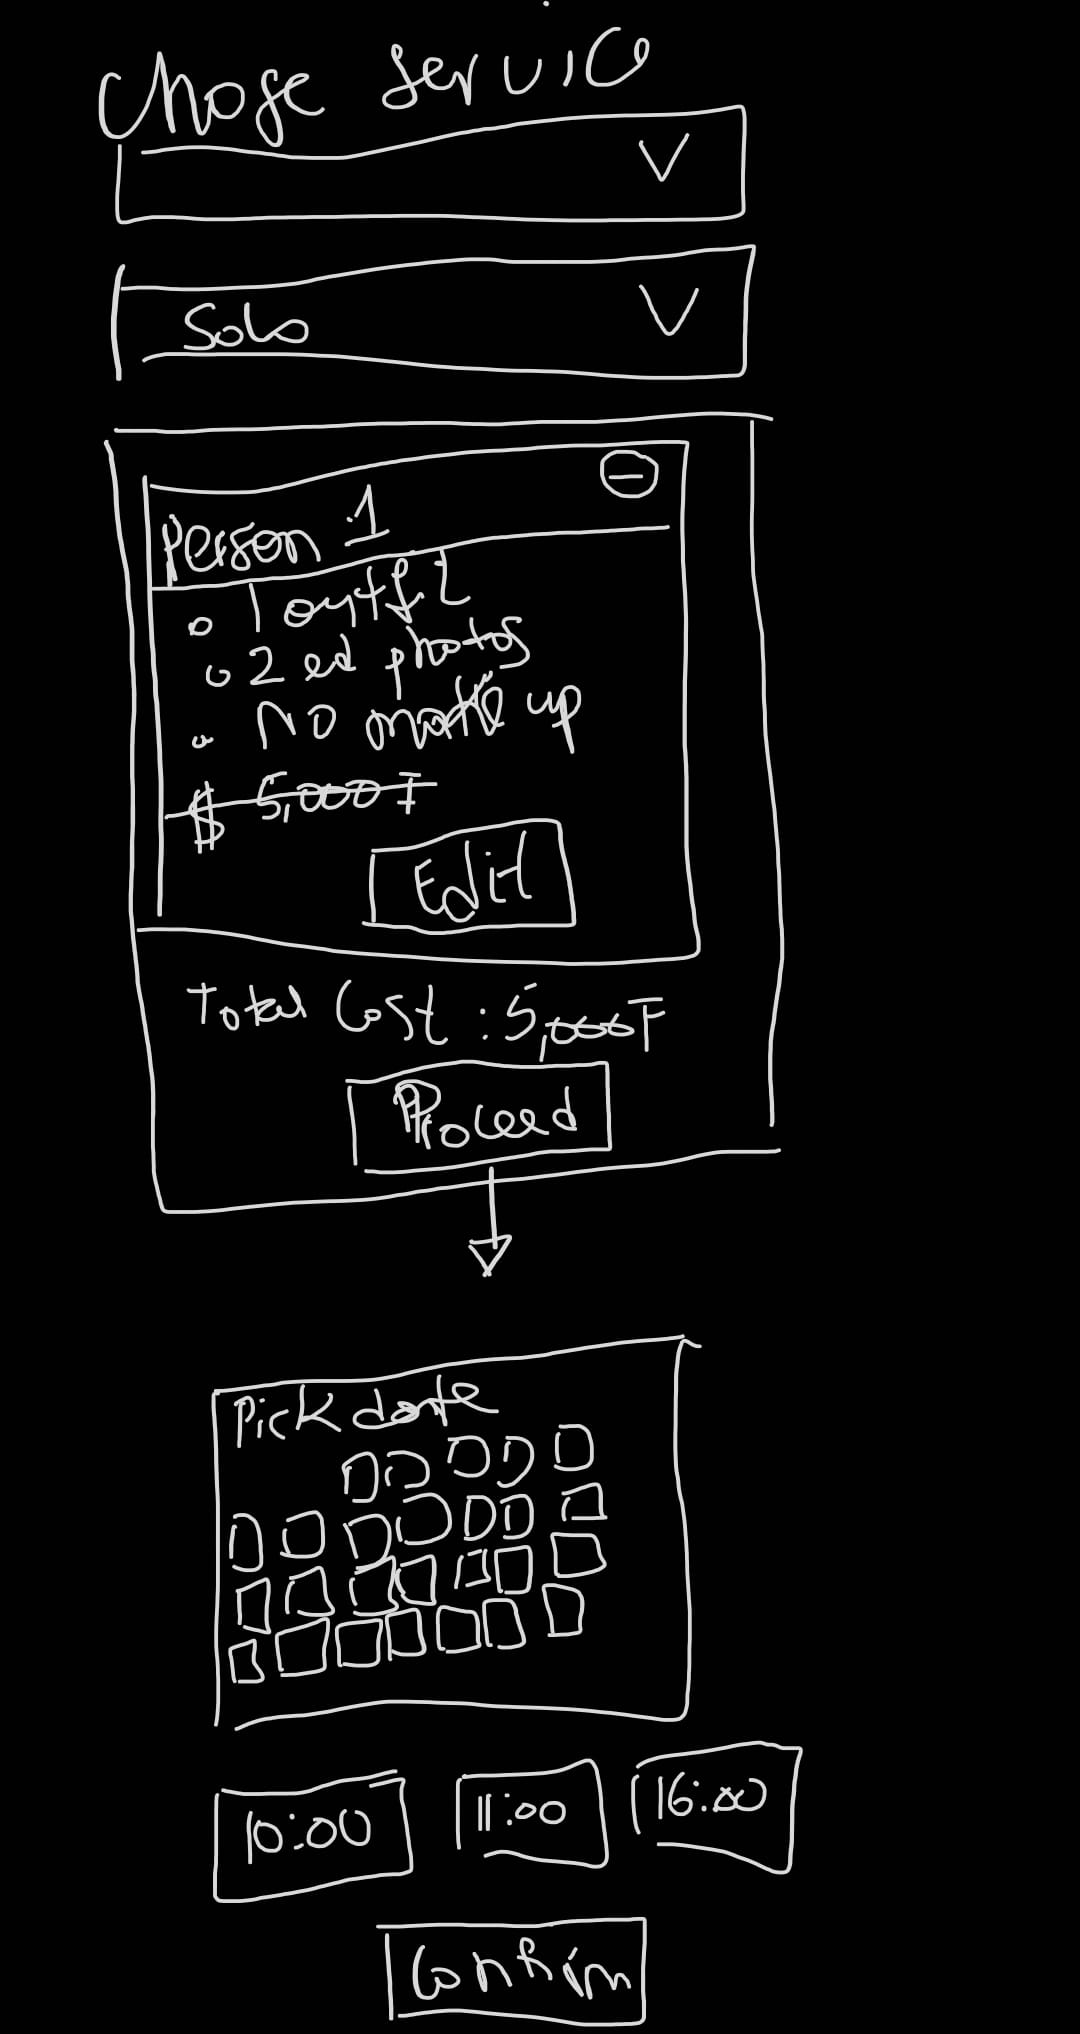 Chose service
Solo
Person :1
1 outfit
2 ed photos
No make up
$ 5,000 F
Edit
Total Cost : 5,000F
Proceed
Pick date
10:00
11:00
16:00
Confirm